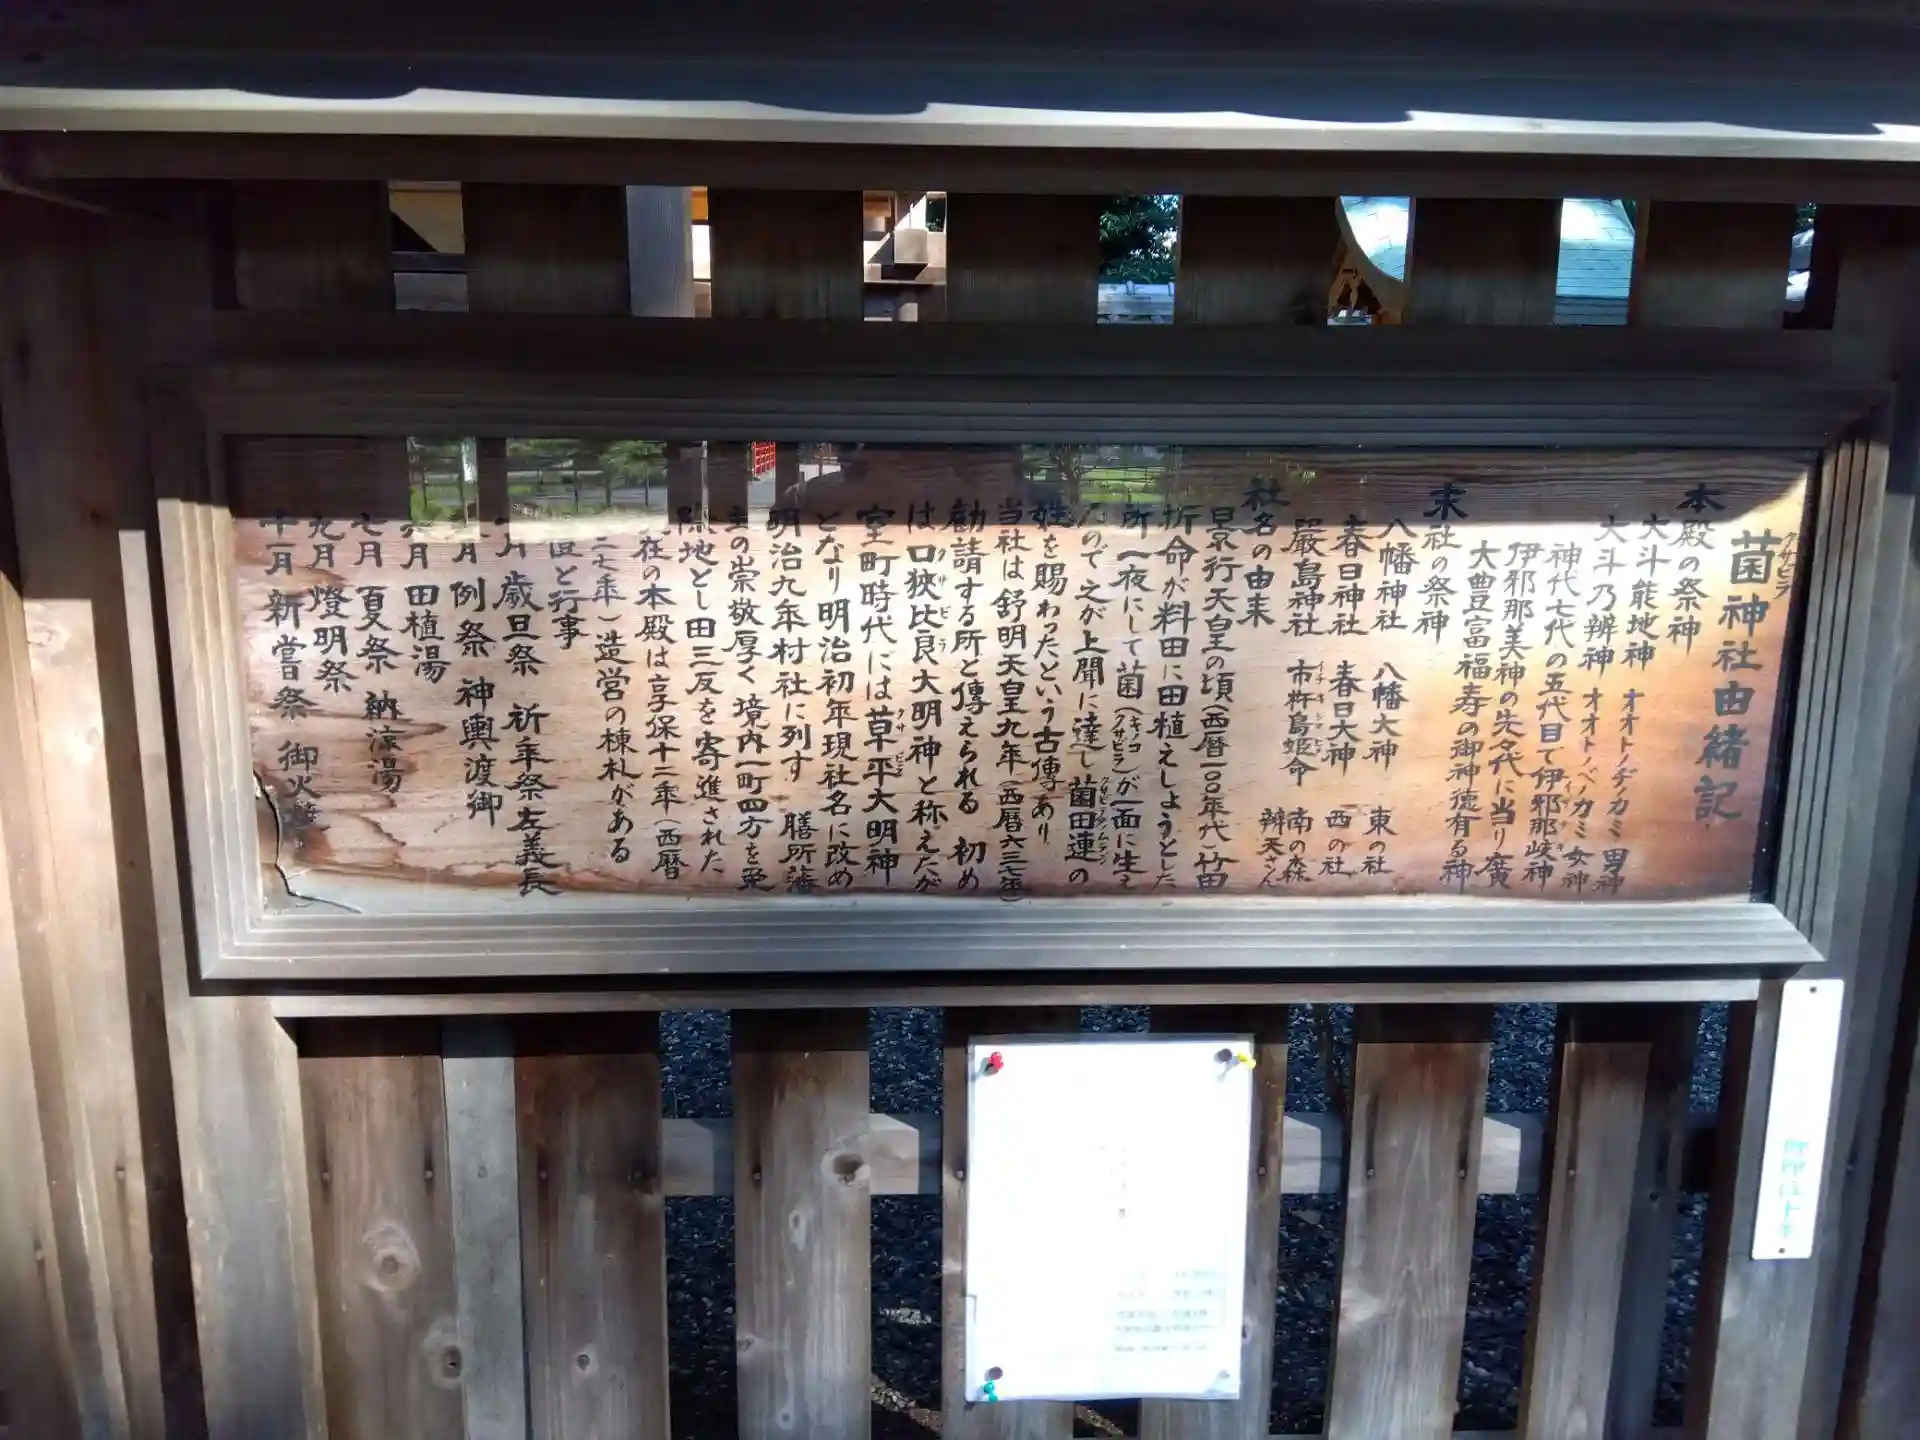 菌神社由緒記
クサビラ
本殿の祭神
大斗能地神 オオトノヂノカミ 男神
大斗乃辨神 オオトノベノカミ 女神
神代七代の五代目で伊邪那岐神
伊邪那美神の先々代に当り廣
大豊富福寿の御神徳有る神
末社の祭神
八幡神社 八幡大神 東の社
春日神社 春日大神 西の社
嚴島神社 市杵島姫命 南の森
辨天さん
社名の由来
景行天皇の頃(西暦一〇〇年代)竹田
折命が料田に田植えしようとした
所一夜にして菌(キノコ クサビラ)が一面に生え
たので之が上聞に達し菌田連の
姓を賜わったという古傳あり
当社は舒明天皇九年(西暦六三七年)
勧請する所と傳えられる 初め
は口狹比良大明神と称えたが
クサビラ
室町時代には草平大明神
クサビラ
となり明治初年現社名に改め
明治九年村社に列す 膳所藩
主の崇敬厚く境内一町四方を免
除地とし田三反を寄進された
現在の本殿は享保十二年(西暦
二七年)造営の棟札がある
と行事
一月 歳旦祭 祈年祭左義長
月 例祭 神輿渡御
六月 田植湯
七月 夏祭 納涼湯
九月 燈明祭
十一月 新嘗祭 御火